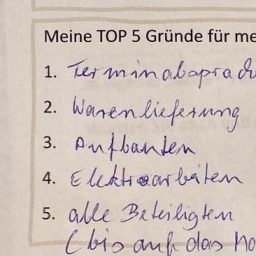 Meine TOP 5 Gründe für me
1. Terminabspra
2. Warenlieferung
3. Aufbauten
4. Elektroarbeiten
5. alle Beteiligten
(bis auf das